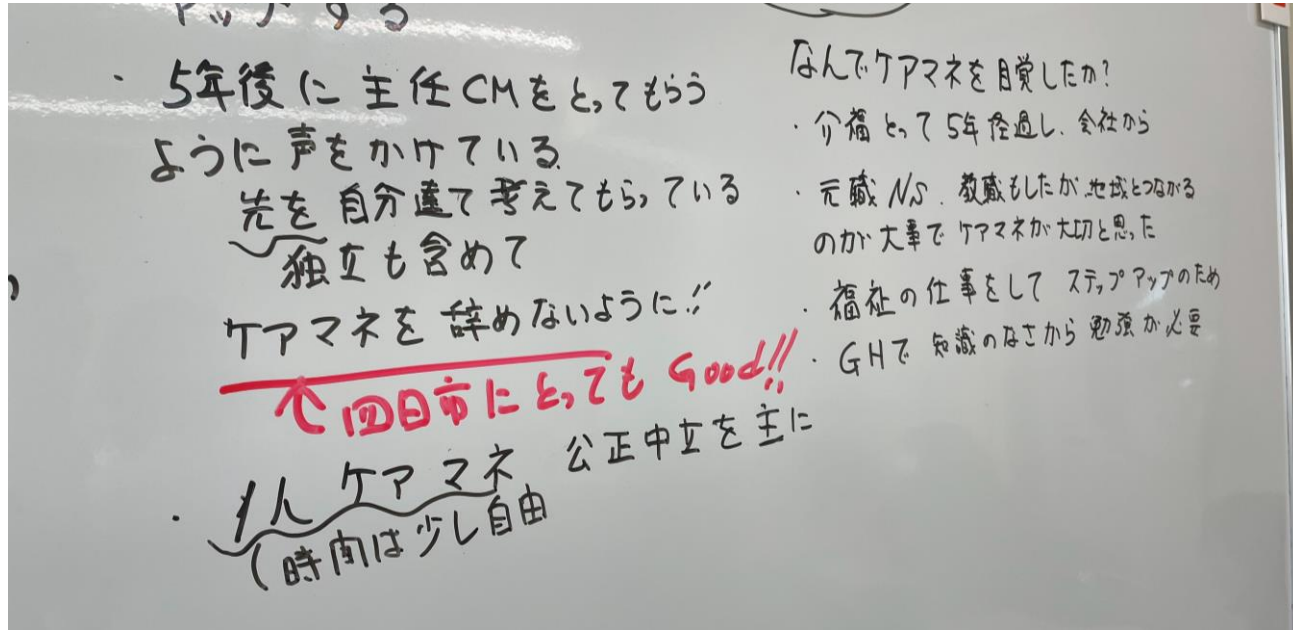 アップする
・5年後に主任CMをとってもらう
ように声をかけている
先を自分達で考えてもらっている
独立も含めて
ケアマネを辞めないように!!
↑四日市にとってもGood!!
・1人ケアマネ 公正中立を主に
(時間は少し自由
なんでケアマネを目覚したか?
・介福とって5年経過し、会社から
・元職NS. 教職もしたが地域とつながる
のが大事でケアマネが大切と思った
・福祉の仕事をしてステップアップのため
・GHで知識のなさから勉強が必要